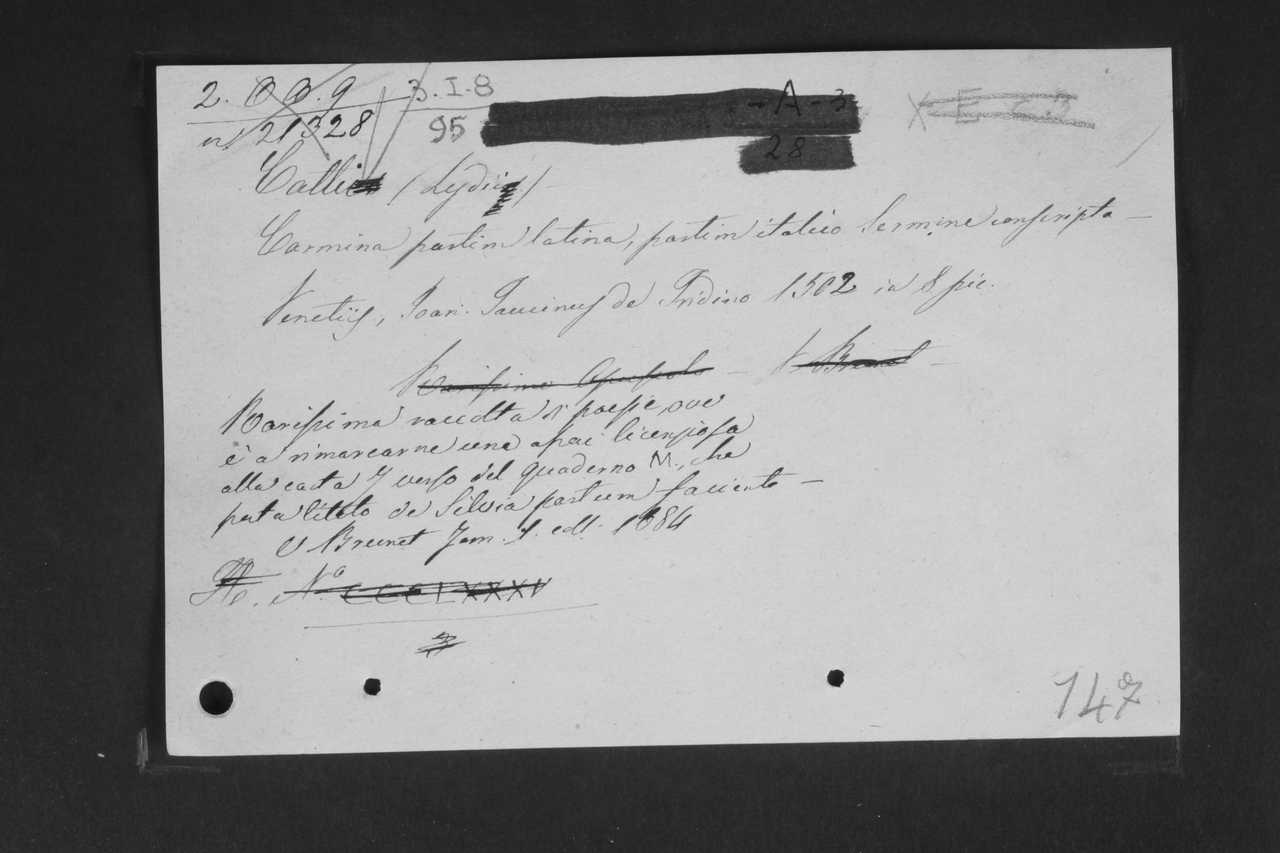 2. O O. 9 3. I. 8 - A - 3 X E
n/ 21328 95 28
Catti (Lydii)
Carmina partim latina, partim italico Sermone conscripta —
Venetiis, Joan. Tacuinus de Tridino 1502 in 8 pic.
Rarissimo Opuscolo — V Brunet —
Rarissima raccolta di poesie, ove
è a rimarcarne una assai licenziosa
alla carta 7 verso del quaderno M., che
porta titolo de Silvia partum faciente —
V Brunet Tom. 1. edl. 1684
No CCCLXXXV
147